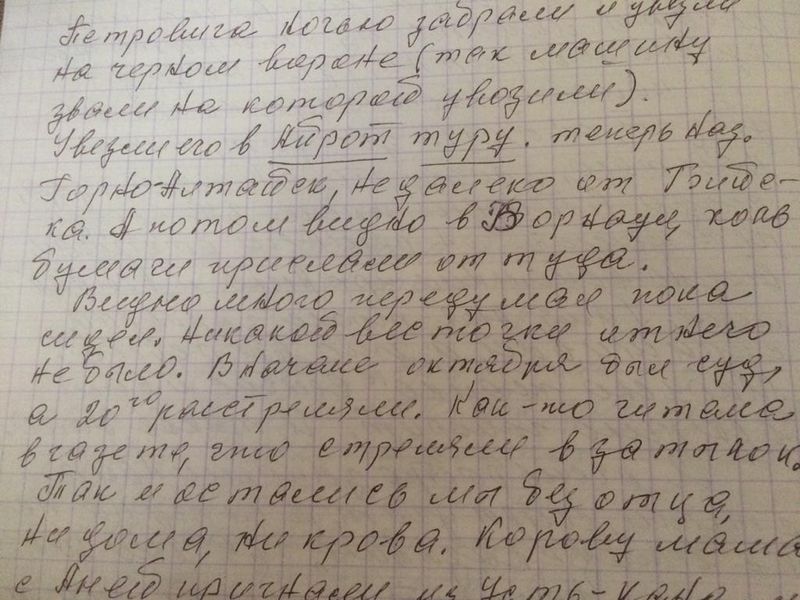 Петровича ночью забрали и увезли
на черном вороне (так машину
звали на которой увозили).
Увезли его в Айрот туру. теперь наз.
Горно-Алтайск, недалеко от Бийс-
ка. А потом видно в Ворнаул, коль
бумаги прислали от туда.
Видно много передумал пока
сидел. Никакой весточки от него
не было. В начале октября был суд,
а 20го расстреляли. Как-то читала
в газете, что стреляли в затылок.
Так и остались мы без отца,
ни дома, ни крова. Корову мама
с Аней пригнали из Усть-Кана